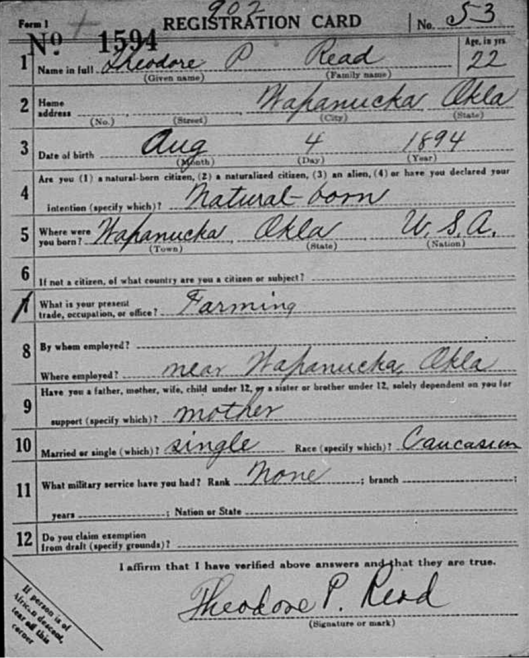 902
Form 1 REGISTRATION CARD No. 53
No 1594
Age, in yrs.
1 Name in full Theodore P Read 22
(Given name) (Family name)
2 Home address Wapanucka Okla
(No.) (Street) (City) (State)
3 Date of birth Aug 4 1894
(Month) (Day) (Year)
4 Are you (1) a natural-born citizen, (2) a naturalized citizen, (3) an alien, (4) or have you declared your
intention (specify which)? Natural-born
5 Where were you born? Wapanucka Okla U.S.A.
(Town) (State) (Nation)
6 If not a citizen, of what country are you a citizen or subject?
7 What is your present trade, occupation, or office? Farming
8 By whom employed?
Where employed? near Wapanucka, Okla
9 Have you a father, mother, wife, child under 12, or a sister or brother under 12, solely dependent on you for
support (specify which)? mother
10 Married or single (which)? single Race (specify which)? Caucasian
11 What military service have you had? Rank None ; branch ;
years ; Nation or State
12 Do you claim exemption from draft (specify grounds)?
I affirm that I have verified above answers and that they are true.
Theodore P. Read
(Signature or mark)
If person is of
African descent,
tear off this
corner